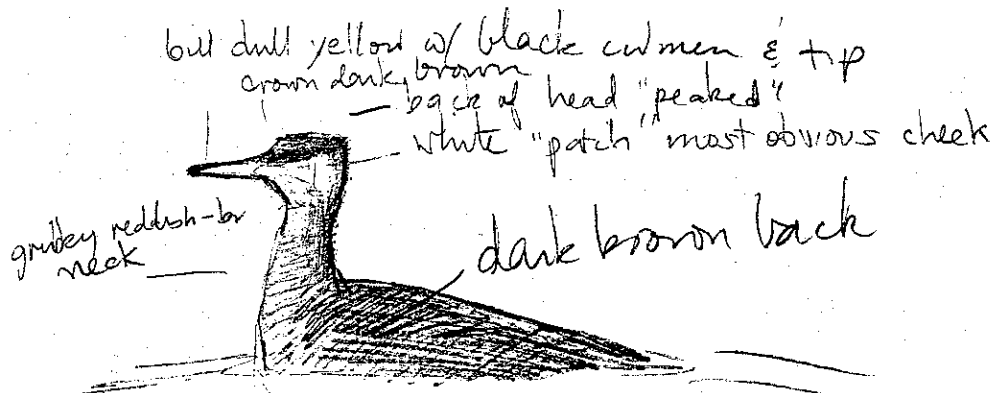 bill dull yellow w/ black culmen & tip
crown dark brown
back of head "peaked"
white "patch" most obvious cheek
grubby reddish-br
neck
dark brown back